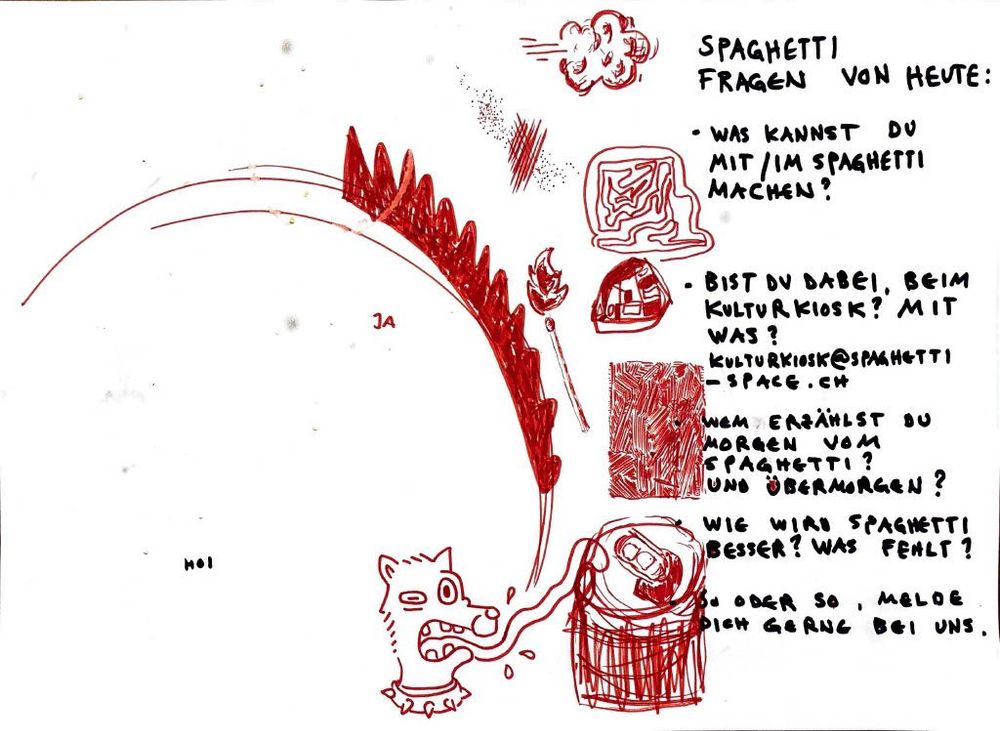 SPAGHETTI
FRAGEN VON HEUTE:
• WAS KANNST DU
MIT/IM SPAGHETTI
MACHEN?
• BIST DU DABEI, BEIM
KULTURKIOSK? MIT
WAS?
KULTURKIOSK@SPAGHETTI
-SPACE.CH
• WEM ERZÄHLST DU
MORGEN VOM
SPAGHETTI?
UND ÜBERMORGEN?
• WIE WIRD SPAGHETTI
BESSER? WAS FEHLT?
• SO ODER SO, MELDE
DICH GERNE BEI UNS.
JA
HOI